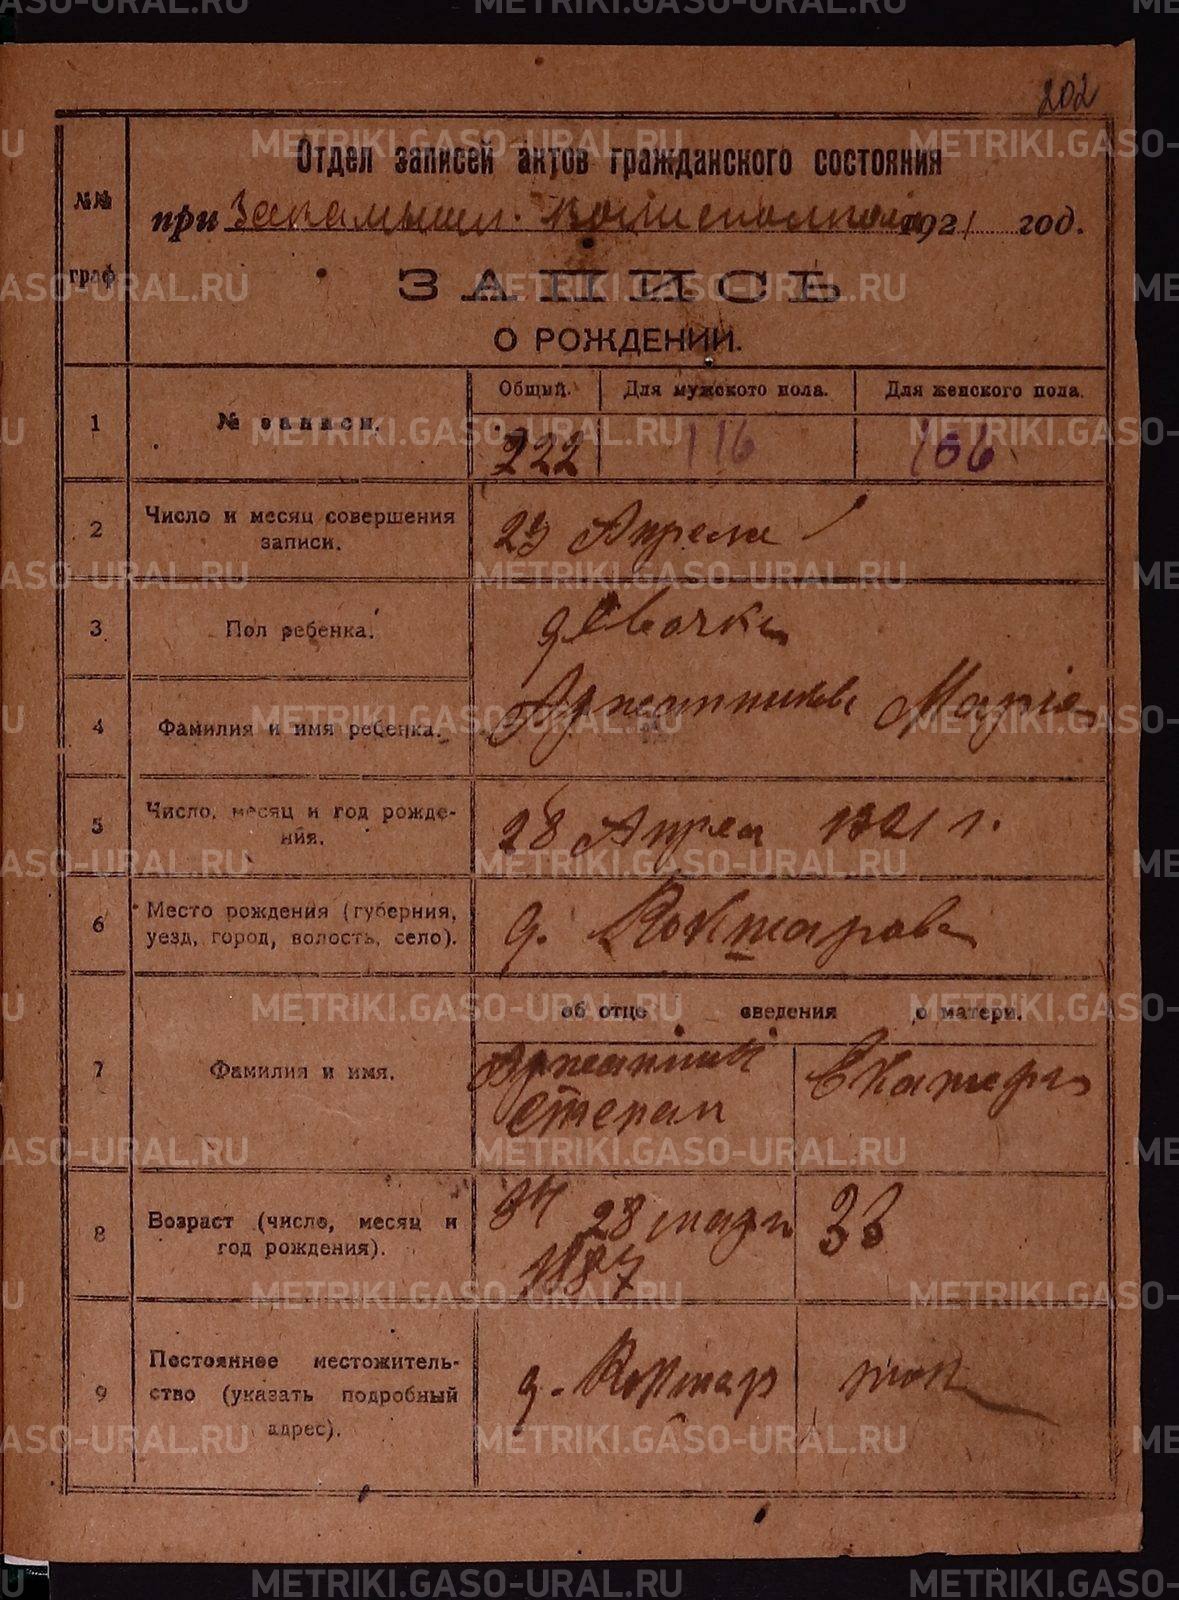 202
№№ граф
Отдел записей актов гражданского состояния
при Закамышл. волисполкоме 1921 год.
ЗАПИСЬ
О РОЖДЕНИИ.
1 № записи. Общий. Для мужского пола. Для женского пола.
222 116 106
2 Число и месяц совершения записи. Апреля
3 Пол ребенка. девочка
4 Фамилия и имя ребенка. Марія
5 Число, месяц и год рождения. 28 Апрел 1921 г.
6 Место рождения (губерния, уезд, город, волость, село). д. Кокшарова
об отце сведения о матери.
7 Фамилия и имя. Степан Екатери
8 Возраст (число, месяц и год рождения). 28 марта 1887 33
9 Постоянное местожительство (указать подробный адрес). д. Кокшар
METRIKI.GASO-URAL.RU